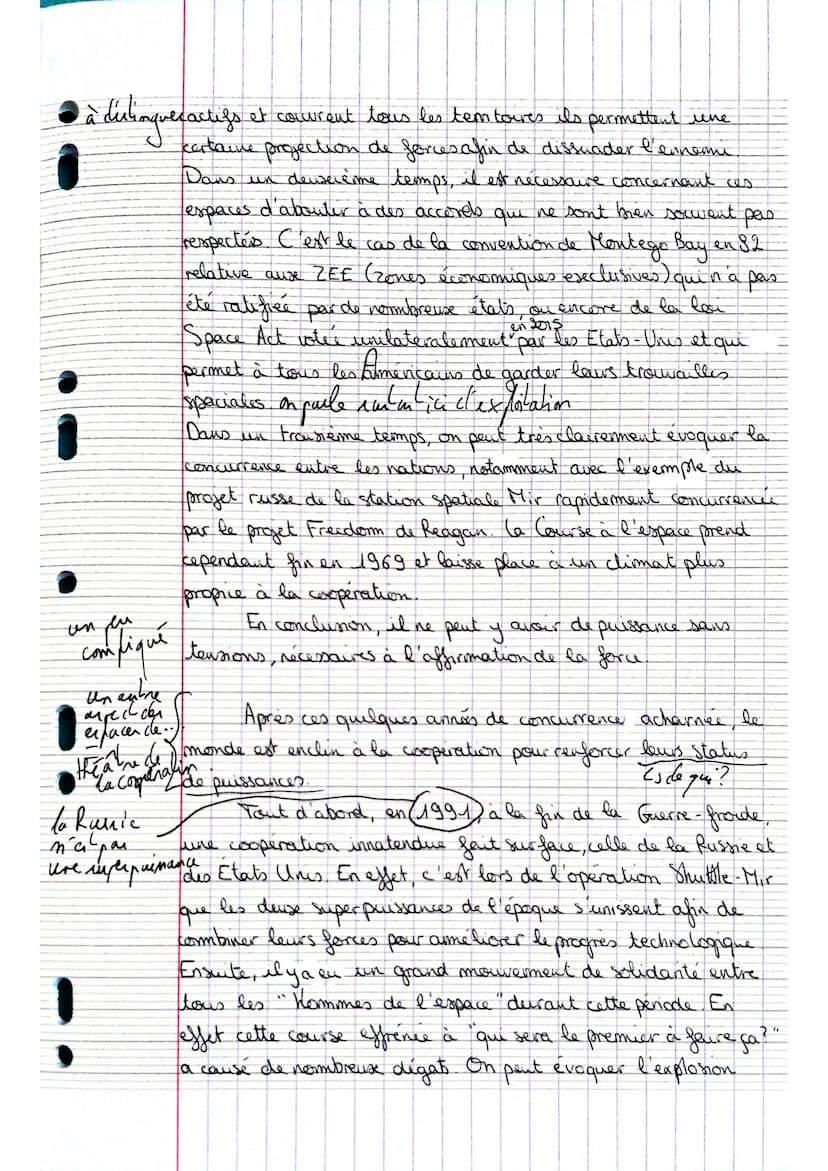 à distinguer actifs et couvrent tous les territoires ils permettent une
certaine projection de forces afin de dissuader l'ennemi.
Dans un deuxième temps, il est nécessaire concernant ces
espaces d'aboutir à des accords qui ne sont bien souvent pas
respectés. C'est le cas de la convention de Montego Bay en 82
relative aux ZEE (zones économiques exclusives) qui n'a pas
été ratifiée par de nombreux états, ou encore de la loi
Space Act votée unilatéralement en 2015 par les Etats-Unis et qui
permet à tous les Américains de garder leurs trouvailles
spaciales. on parle surtout ici d'exploitation
Dans un troisième temps, on peut très clairement évoquer la
concurrence entre les nations, notamment avec l'exemple du
projet russe de la station spatiale Mir rapidement concurrencée
par le projet Freedom de Reagan. La Course à l'espace prend
cependant fin en 1969 et laisse place à un climat plus
propice à la coopération.
un peu
compliqué
En conclusion, il ne peut y avoir de puissance sans
tensions, nécessaires à l'affirmation de la force.
un autre
aspect des
espaces de...
théâtre de
la coopération
Après ces quelques annés de concurrence acharnée, le
monde est enclin à la coopération pour renforcer leurs status
↳ de qui?
de puissances.
la Russie
n'est pas
une superpuissance
Tout d'abord, en 1991, à la fin de la Guerre-froide,
une coopération innatendue fait surface, celle de la Russie et
des États Unis. En effet, c'est lors de l'opération Shuttle-Mir
que les deux superpuissances de l'époque s'unissent afin de
combiner leurs forces pour améliorer le progrès technologique.
Ensuite, il y a eu un grand mouvement de solidarité entre
tous les "Hommes de l'espace" durant cette période. En
effet cette course effrénée à "qui sera le premier à faire ça?"
a causé de nombreux dégats. On peut évoquer l'explosion